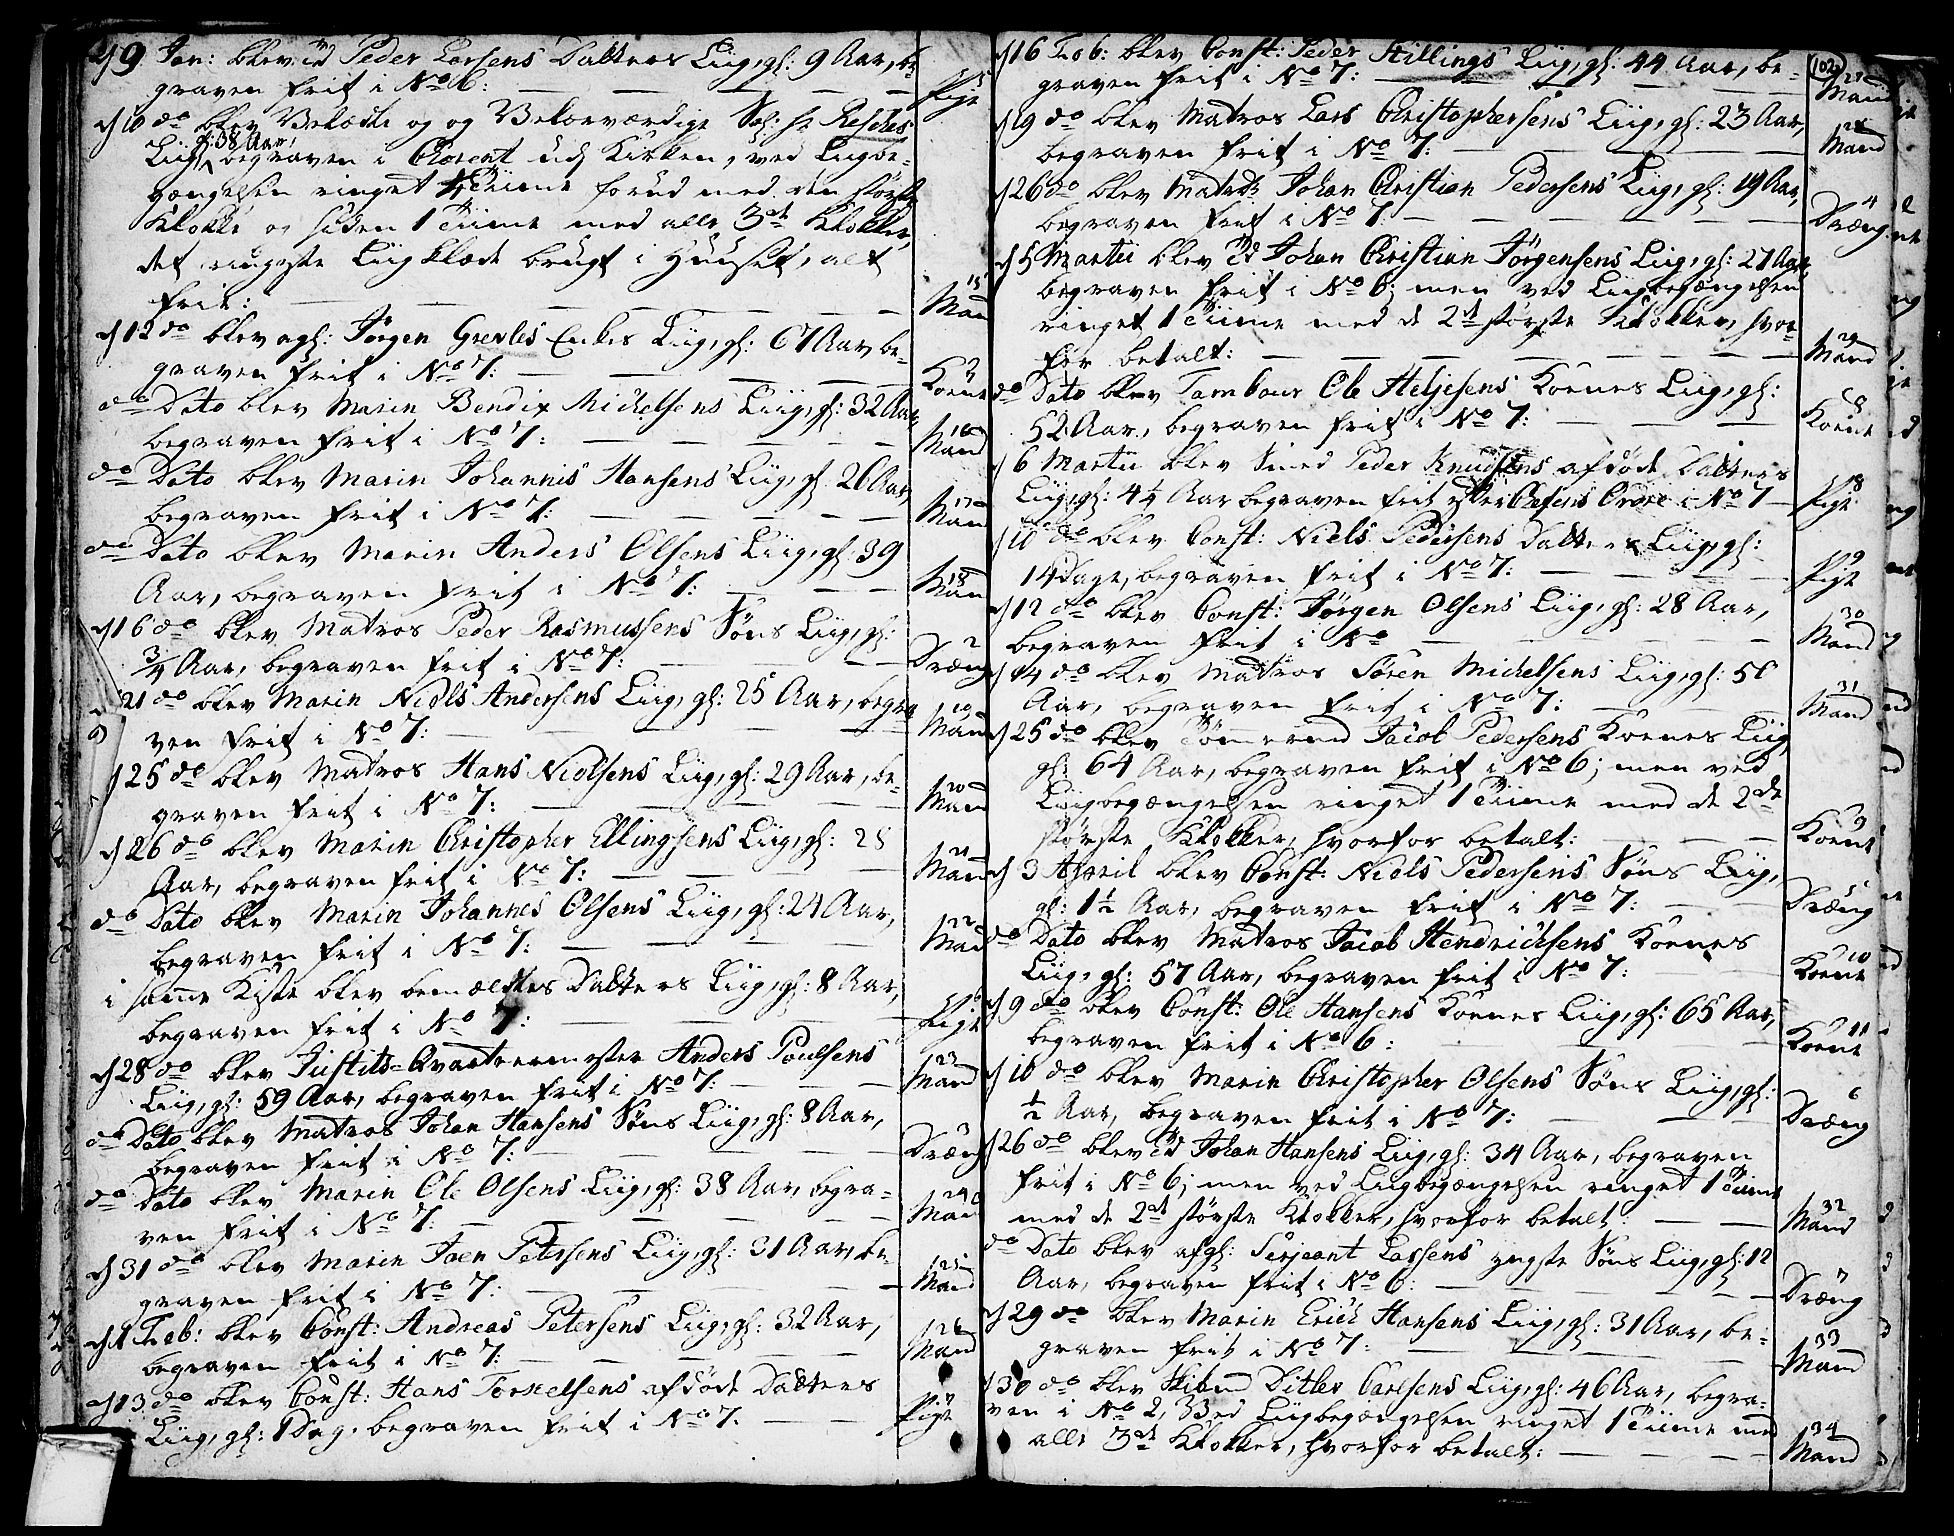 d 9 Jan: blev Peder Larsens Datters Liig, gl: 9 Aar, be-
graven frit i No 6: Pige
d 10 do blev og Velærværdige Sal: Hr Resches
gl: 38 Aar,
Liig begraven i Choret udj Kirken, ved Liigbe-
gængelsen ringet 1/4 Tiime forud med den største
Klokke og siden 1 Tiime med alle 3de Klokker,
det ringeste Liigklæde brugt i Huuset, alt
frit: 15 Mand
d 12 do blev afgl: Jörgen Grevles Enkes Liig, gl: 67 Aar be-
graven frit i No 7: Kone
do Dato blev Marin Bendix Michelsens Liig, gl: 32 Aar,
begraven frit i No 7: 16 Mand
do Dato blev Marin Johannis Hansens Liig, gl: 26 Aar,
begraven frit i No 7: 17 Mand
do Dato blev Marin Anders Olsens Liig, gl: 39
Aar, begraven frit i No 7: 18 Mand
d 16 do blev Matros Peder Rasmussens Söns Liig, gl:
3/4 Aar, begraven frit i No 7: 2 Dræng
d 21 do blev Marin Niels Andersens Liig, gl: 25 Aar, begra-
ven frit i No 7: 19 Mand
d 25 do blev Matros Hans Nielsens Liig, gl: 29 Aar, be-
graven frit i No 7: 20 Mand
d 26 do blev Marin Christopher Ellingsens Liig, gl: 28
Aar, begraven frit i No 7: 21 Mand
do Dato blev Marin Johannes Olsens Liig, gl: 24 Aar,
begraven frit i No 7: 22 Mand
i samme Kiste blev bemældtes Datters Liig, gl: 8 Aar,
begraven frit i No 7: 6 Pige
d 28 do blev Justits-Qvarteermester Anders Poulsens
Liig, gl: 59 Aar, begraven frit i No 7: 23 Mand
do Dato blev Matros Johan Hansens Söns Liig, gl: 8 Aar,
begraven frit i No 7: 3 Dræng
do Dato blev Marin Ole Olsens Liig, gl: 38 Aar, begra-
ven frit i No 7: 24 Mand
d 31 do blev Marin Joen Petersens Liig, gl: 31 Aar, be-
graven frit i No 7: 25 Mand
d 1 Feb: blev Const: Andreas Petersens Liig, gl: 32 Aar,
begraven frit i No 7: 26 Mand
d 13 do blev Const: Hans Torkelsens afdöde Datters
Liig, gl: 1 Dag, begraven frit i No 7. 7 Pige
102
d 16 Feb: blev Const: Peder Hillings Liig, gl: 44 Aar, be-
graven frit i No 7: 27 Mand
d 19 do blev Matros Lars Christophersens Liig, gl: 23 Aar,
begraven frit i No 7: 28 Mand
d 26 do blev Matros Johan Christian Pedersens Liig, gl: 19 Aar,
begraven frit i No 7 4 Dræng
d 5 Martii blev Johan Christian Jörgensens Liig, gl: 27 Aar,
begraven frit i No 6; men ved Liigbegængelsen
ringet 1 Tiime med de 2de største Klokker, hvor-
for betalt: 29 Mand
do Dato blev Tambour Ole Heljesens Kones Liig, gl:
52 Aar, begraven frit i No 7: 8 Kone
d 6 Martii blev Smed Peder Knudsens afdöde Datters
Liig, gl: 4 1/4 Aar begraven frit efter Chefens Ordre i No 7 8 Pige
d 10 do blev Const: Niels Pedersens Datters Liig, gl:
14 Dage, begraven frit i No 7: 9 Pige
d 12 do blev Const: Jörgen Olsens Liig, gl: 28 Aar,
begraven frit i No 30 Mand
d 14 do blev Matros Sören Michelsens Liig, gl: 50
Aar, begraven frit i No 7: 31 Mand
d 25 do blev Tömermd Jacob Pedersens Kones Liig
gl: 64 Aar, begraven frit i No 6; men ved
Liigbegængelsen ringet 1 Tiime med de 2de
største Klokker, hvorfor betalt: 9 Kone
d 3 April blev Const: Niels Pedersens Söns Liig,
gl: 1 1/2 Aar, begraven frit i No 7: 5 Dræng
do Dato blev Matros Jacob Hendrichsens Kones
Liig, gl: 57 Aar, begraven frit i No 7: 10 Kone
d 9 do blev Const: Ole Hansens Kones Liig, gl: 65 Aar,
begraven frit i No 6: 11 Kone
d 10 do blev Marin Christopher Olsens Söns Liig, gl:
1/2 Aar, begraven frit i No 7: 6 Dræng
d 26 do blev Johan Hansens Liig, gl: 34 Aar, begraven
frit i No 6; men ved Liigbegængelsen ringet 1 Tiime
med de 2de største Klokker, hvorfor betalt: 32 Mand
do Dato blev afgl: Serjeant Larsens yngste Söns Liig, gl: 12
Aar, begraven frit i No 6: 7 Dræng
d 29 do blev Marin Erich Hansens Liig, gl: 31 Aar, be-
graven frit i No 7: 33 Mand
d 30 do blev Ditlev Carlsens Liig, gl: 46 Aar, begra-
ven i No 2, Ved Liigbegængelsen ringet 1 Tiime med
alle 3de Klokker, hvorfor betalt: 34 Mand